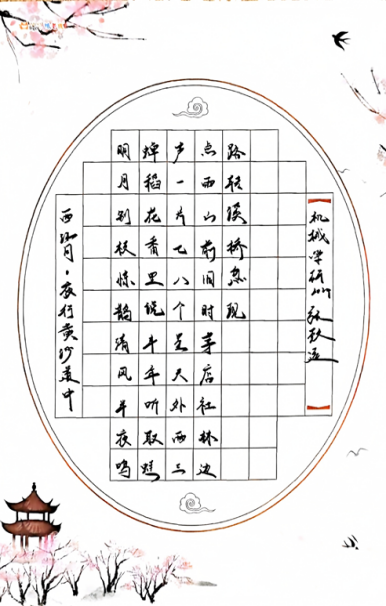 西江月·夜行黄沙道中
明月别枝惊鹊清风半夜鸣
蝉稻花香里说丰年听取蛙
声一片七八个星天外两三
点雨山前旧时茅店社林边
路转溪桥忽现
【机械学研 张秋】